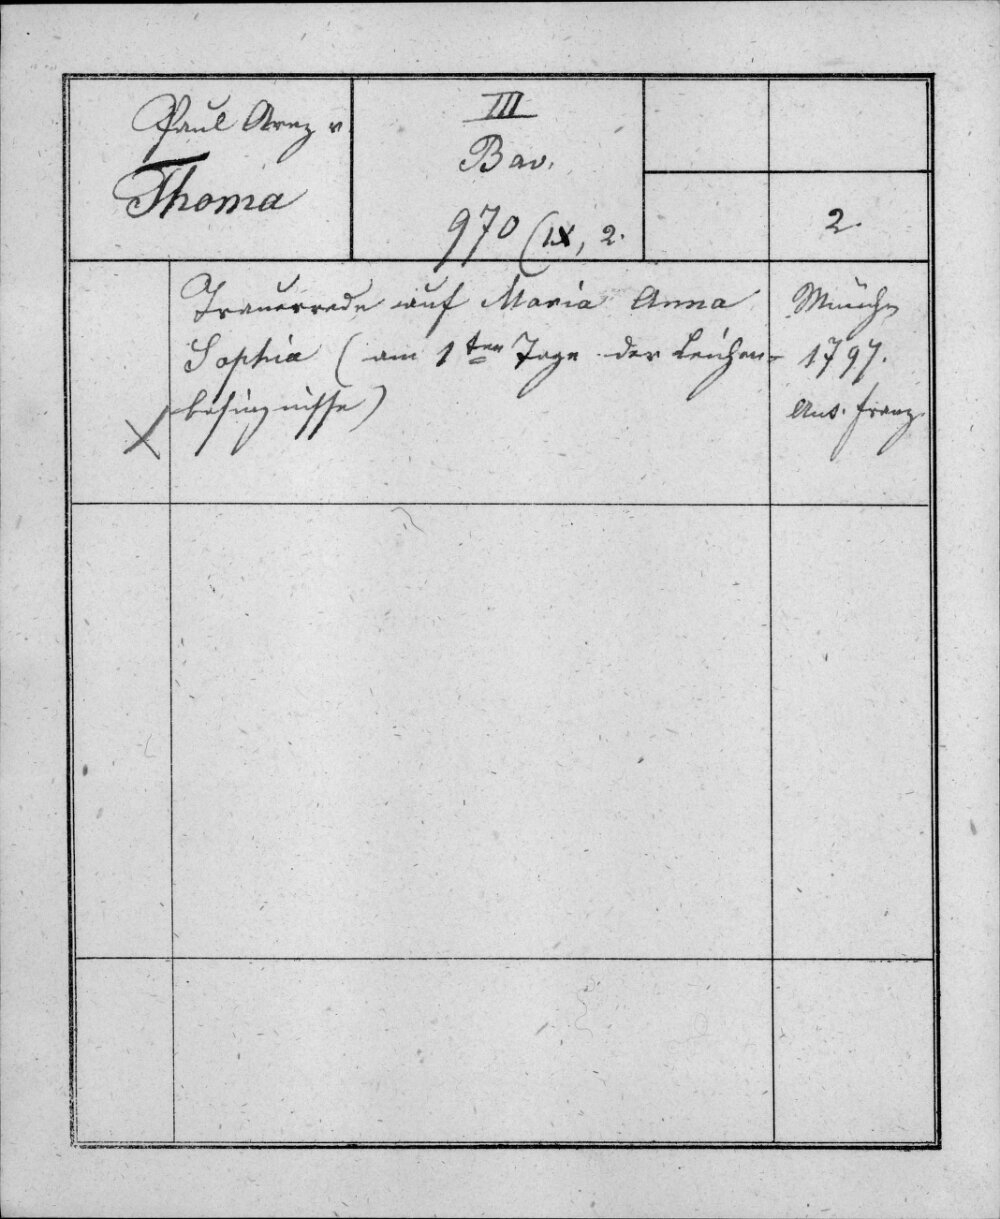 Paul Arez v
Thoma
III
Bav.
970 (IX, 2.
2.
Trauerrede auf Maria Anna
Sophia (am 1ten Tage der Leichen-
besingnisse)
Münch
1797.
Ant. Franz.